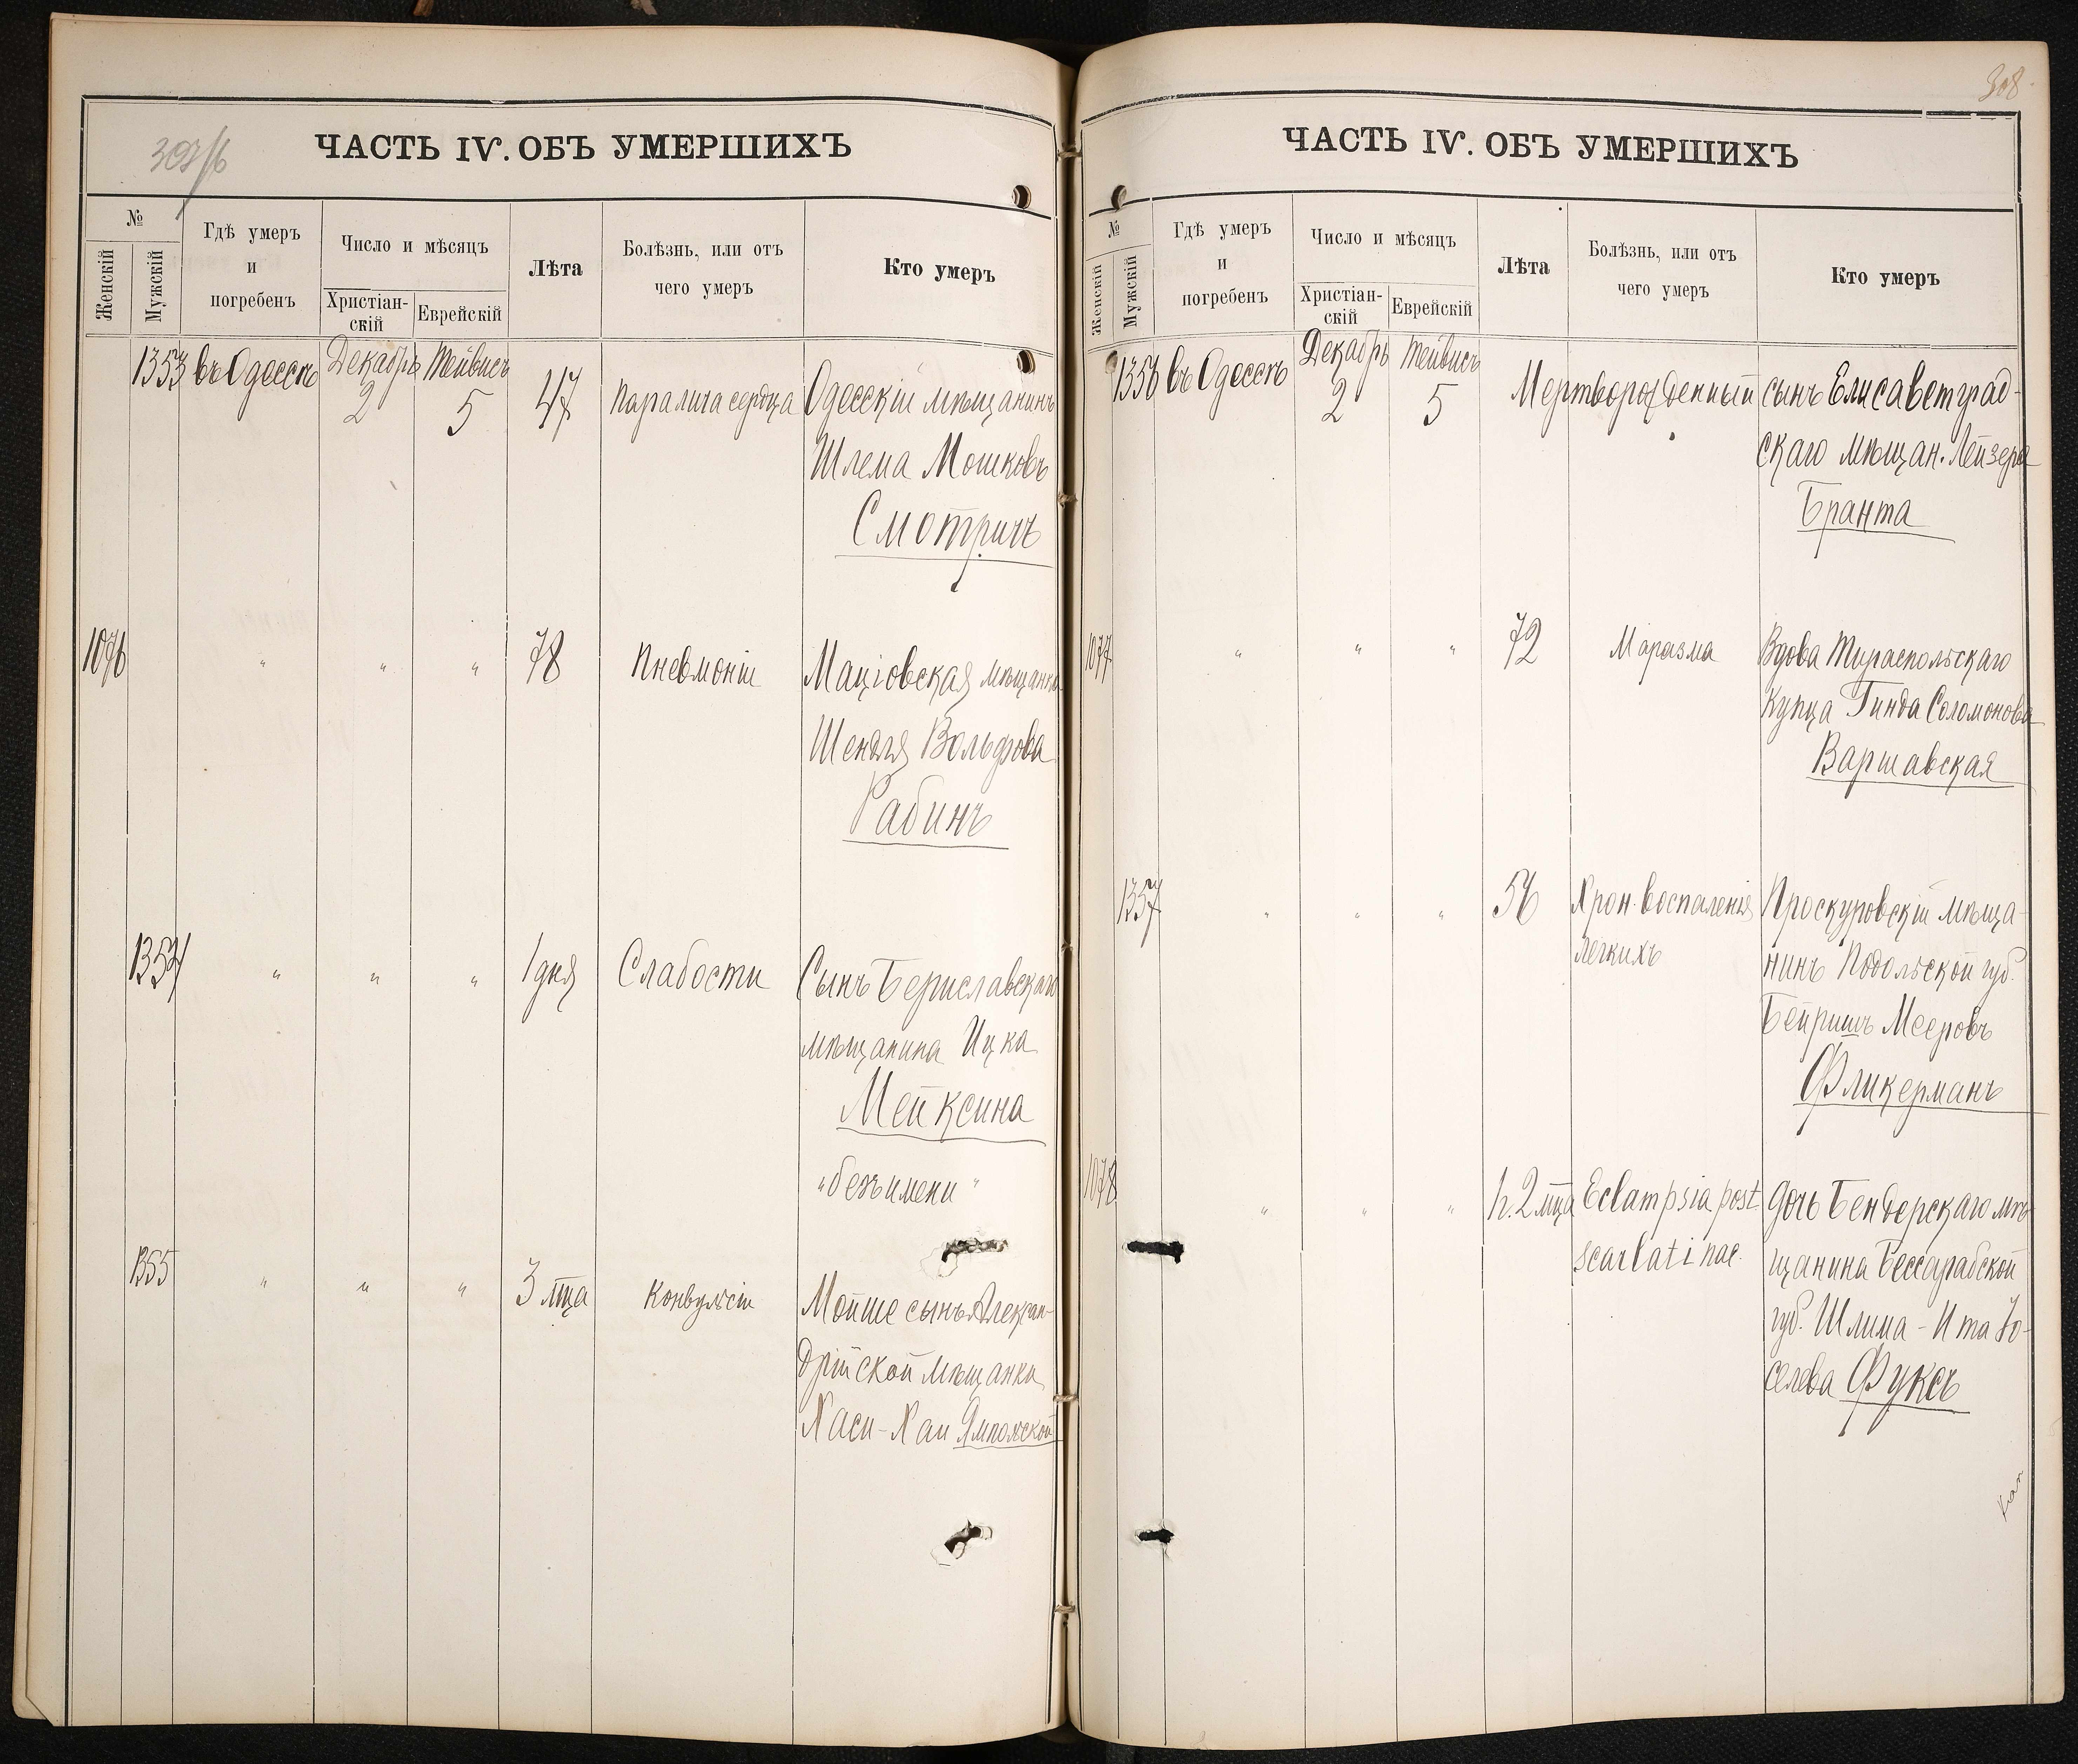 ЧАСТЬ IV. ОБЪ УМЕРШИХЪ
№
Женскій
Мужскій
Гдѣ умеръ
и
погребенъ
Число и мѣсяцъ
Христіан-
скій
Еврейскій
Лѣта
Болѣзнь, или отъ
чего умеръ
Кто умеръ
1353 въ Одессѣ Декабрь 2 Тейвисъ 5 47 Паралича сердца Одесскій мѣщанинъ
Шлема Мошковъ
Смотричъ
1076 " " " 78 Пневмоніи Маціовская мѣщанка
Шендля Вольфова
Рабинъ
1354 " " " 1 дня Слабости Сынъ Бериславскаго
мѣщанина Ицка
Мейксина
"безъ имени"
1355 " " " 3 мца Конвульсіи Мойше сынъ Алексан-
дрійской мѣщанки
Хаси-Хаи Ямпольской
308
ЧАСТЬ IV. ОБЪ УМЕРШИХЪ
№
Женскій
Мужскій
Гдѣ умеръ
и
погребенъ
Число и мѣсяцъ
Христіан-
скій
Еврейскій
Лѣта
Болѣзнь, или отъ
чего умеръ
Кто умеръ
1356 въ Одессѣ Декабрь 2 Тейвисъ 5 Мертворожденный сынъ Елисаветград-
скаго мѣщан. Лейзера
Бранта
1077 " " " 72 Маразма Вдова Тираспольскаго
купца Гинда Соломонова
Варшавская
1357 " " " 56 Хрон. воспаленія Проскуровскій мѣща-
легкихъ нинъ Подольской губ.
Бейришъ Мееровъ
Фликерманъ
1078 " " " 2 мца Eclampsia post Дочь Бендерскаго мѣ-
scarlatinae. щанина Бессарабской
губ. Шлима-Ита Іо-
селева Фуксъ